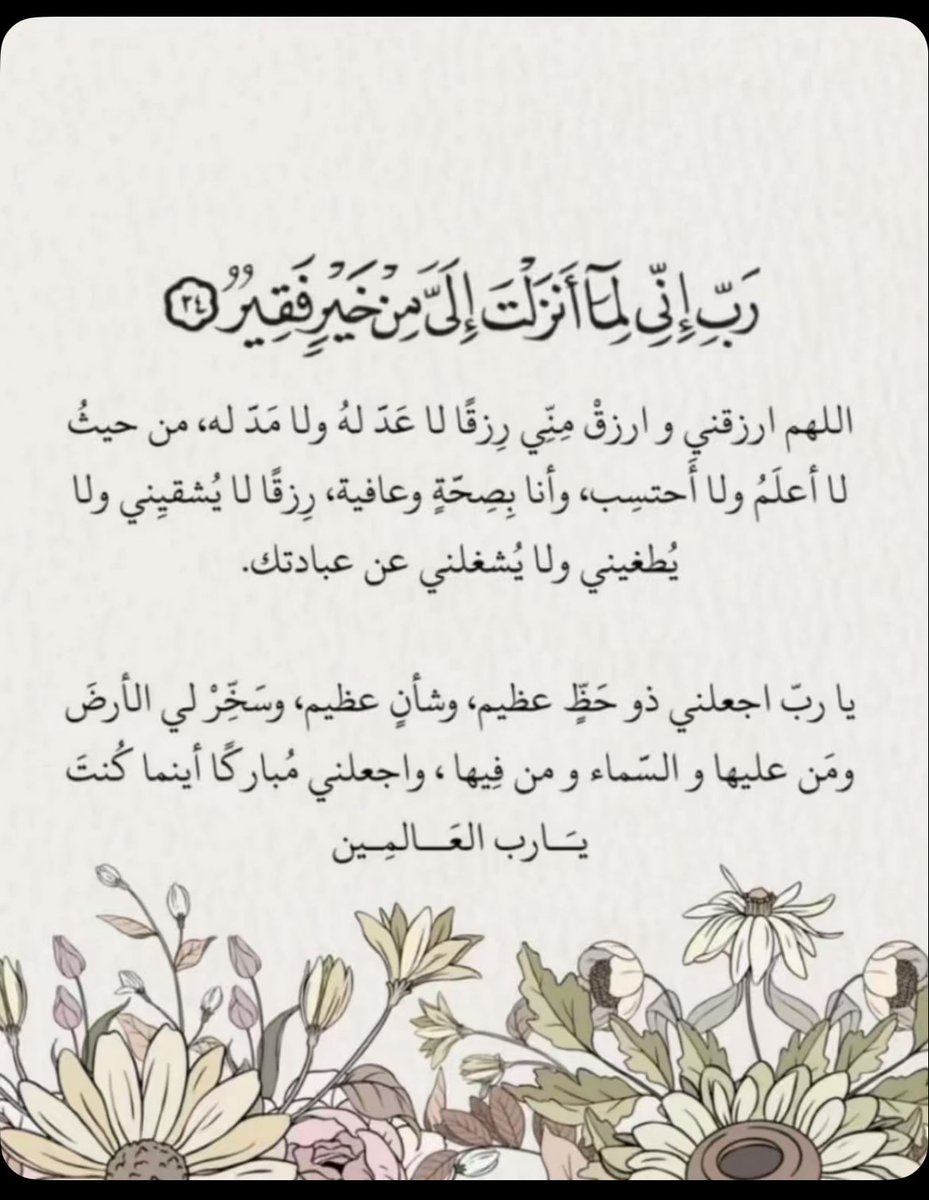 رَبِّ إِنِّى لِمَآ أَنزَلْتَ إِلَىَّ مِنْ خَيْرٍ فَقِيرٌ ٢٤
اللهم ارزقني و ارزقْ مِنِّي رِزقًا لا عَدّ لهُ ولا مَدّ له، من حيثُ
لا أعلَمُ ولا أَحتسِب، وأنا بِصِحّةٍ وعافية، رِزقًا لا يُشقيِني ولا
يُطغيني ولا يُشغلني عن عبادتك.
يا ربّ اجعلني ذو حَظٍّ عظيم، وشأنٍ عظيم، وسَخِّرْ لي الأرضَ
ومَن عليها و السّماء و من فِيها ، واجعلني مُباركًا أينما كُنتَ
يَــارب العَـــالمِـين